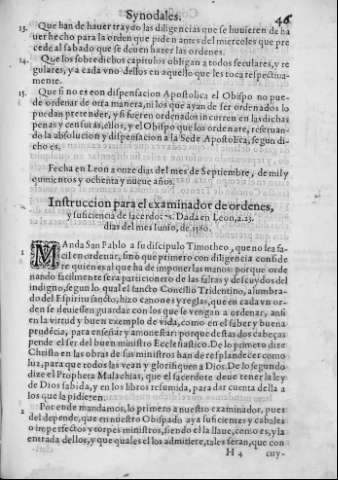 Synodales. 46
13. Que han de hauer traydo las diligencias que se huuieren de ha
uer hecho para la orden que piden antes del miercoles que pre
cede al sabado que se deuen hazer las ordenes.
14. Que los sobredichos capitulos obligan a todos seculares, y re
gulares, y a cada vno dellos en aquello que les toca respectiua-
mente.
15. Que si no es con dispensacion Apostolica el Obispo no pue-
de ordenar de otra manera, ni los que ayan de ser ordenados lo
puedan pretender, y si fueren ordenados incurren en las dichas
penas y censuras, ellos, y el Obispo que los ordenare, reseruan-
do la absolucion y dispensacion a la Sede Apostolica, segun di-
cho es.
Fecha en Leon a onze dias del mes de Septiembre, de mil y
quinientos y ochenta y nueue años.
Instruccion para el examinador de ordenes,
y suficiencia de sacerdotes. Dada en Leon, a 23.
dias del mes Iunio, de 1580.
1 MAnda San Pablo a su discipulo Timotheo, que no sea fa-
cil en ordenar, sino que primero con diligencia consíde
re quienes al que ha de imponer las manos porque orde
nando facilmente sera participionero de las faltas y descuydos del
indigno, segun lo qual el sancto Concilio Tridentino, alumbra-
do del Espiritu sancto, hizo canones y reglas, que en cada vn or-
den se deuiessen guardar con los que se vengan a ordenar, ansi
en la virtud y buen exemplo de vida, como en el saber y buena
prudēcia, para enseñar y amonestar: porque destas dos cabeças
pende el ser del buen ministro Ecclesiastico. De lo primero dize
Christo en las obras de sus ministros han de resplandecer como
luz, para que todos las vean y glorifiquen a Dios. De lo segundo
dize el Propheta Malachias, que el sacerdote deue tener la ley
de Dios sabida, y en los libros resumida, para dar cuenta della a
los que la pidieren.
2 Por ende mandamos, lo primero a nuestro examinador, pues
del depende, que en nuestro Obispado aya suficientes y cabales
o imperfectos y torpes ministros, siendo el la llaue, como es, y la
entrada dellos, y que quales el los admitiere, tales seran, que con
H 4 cuy-